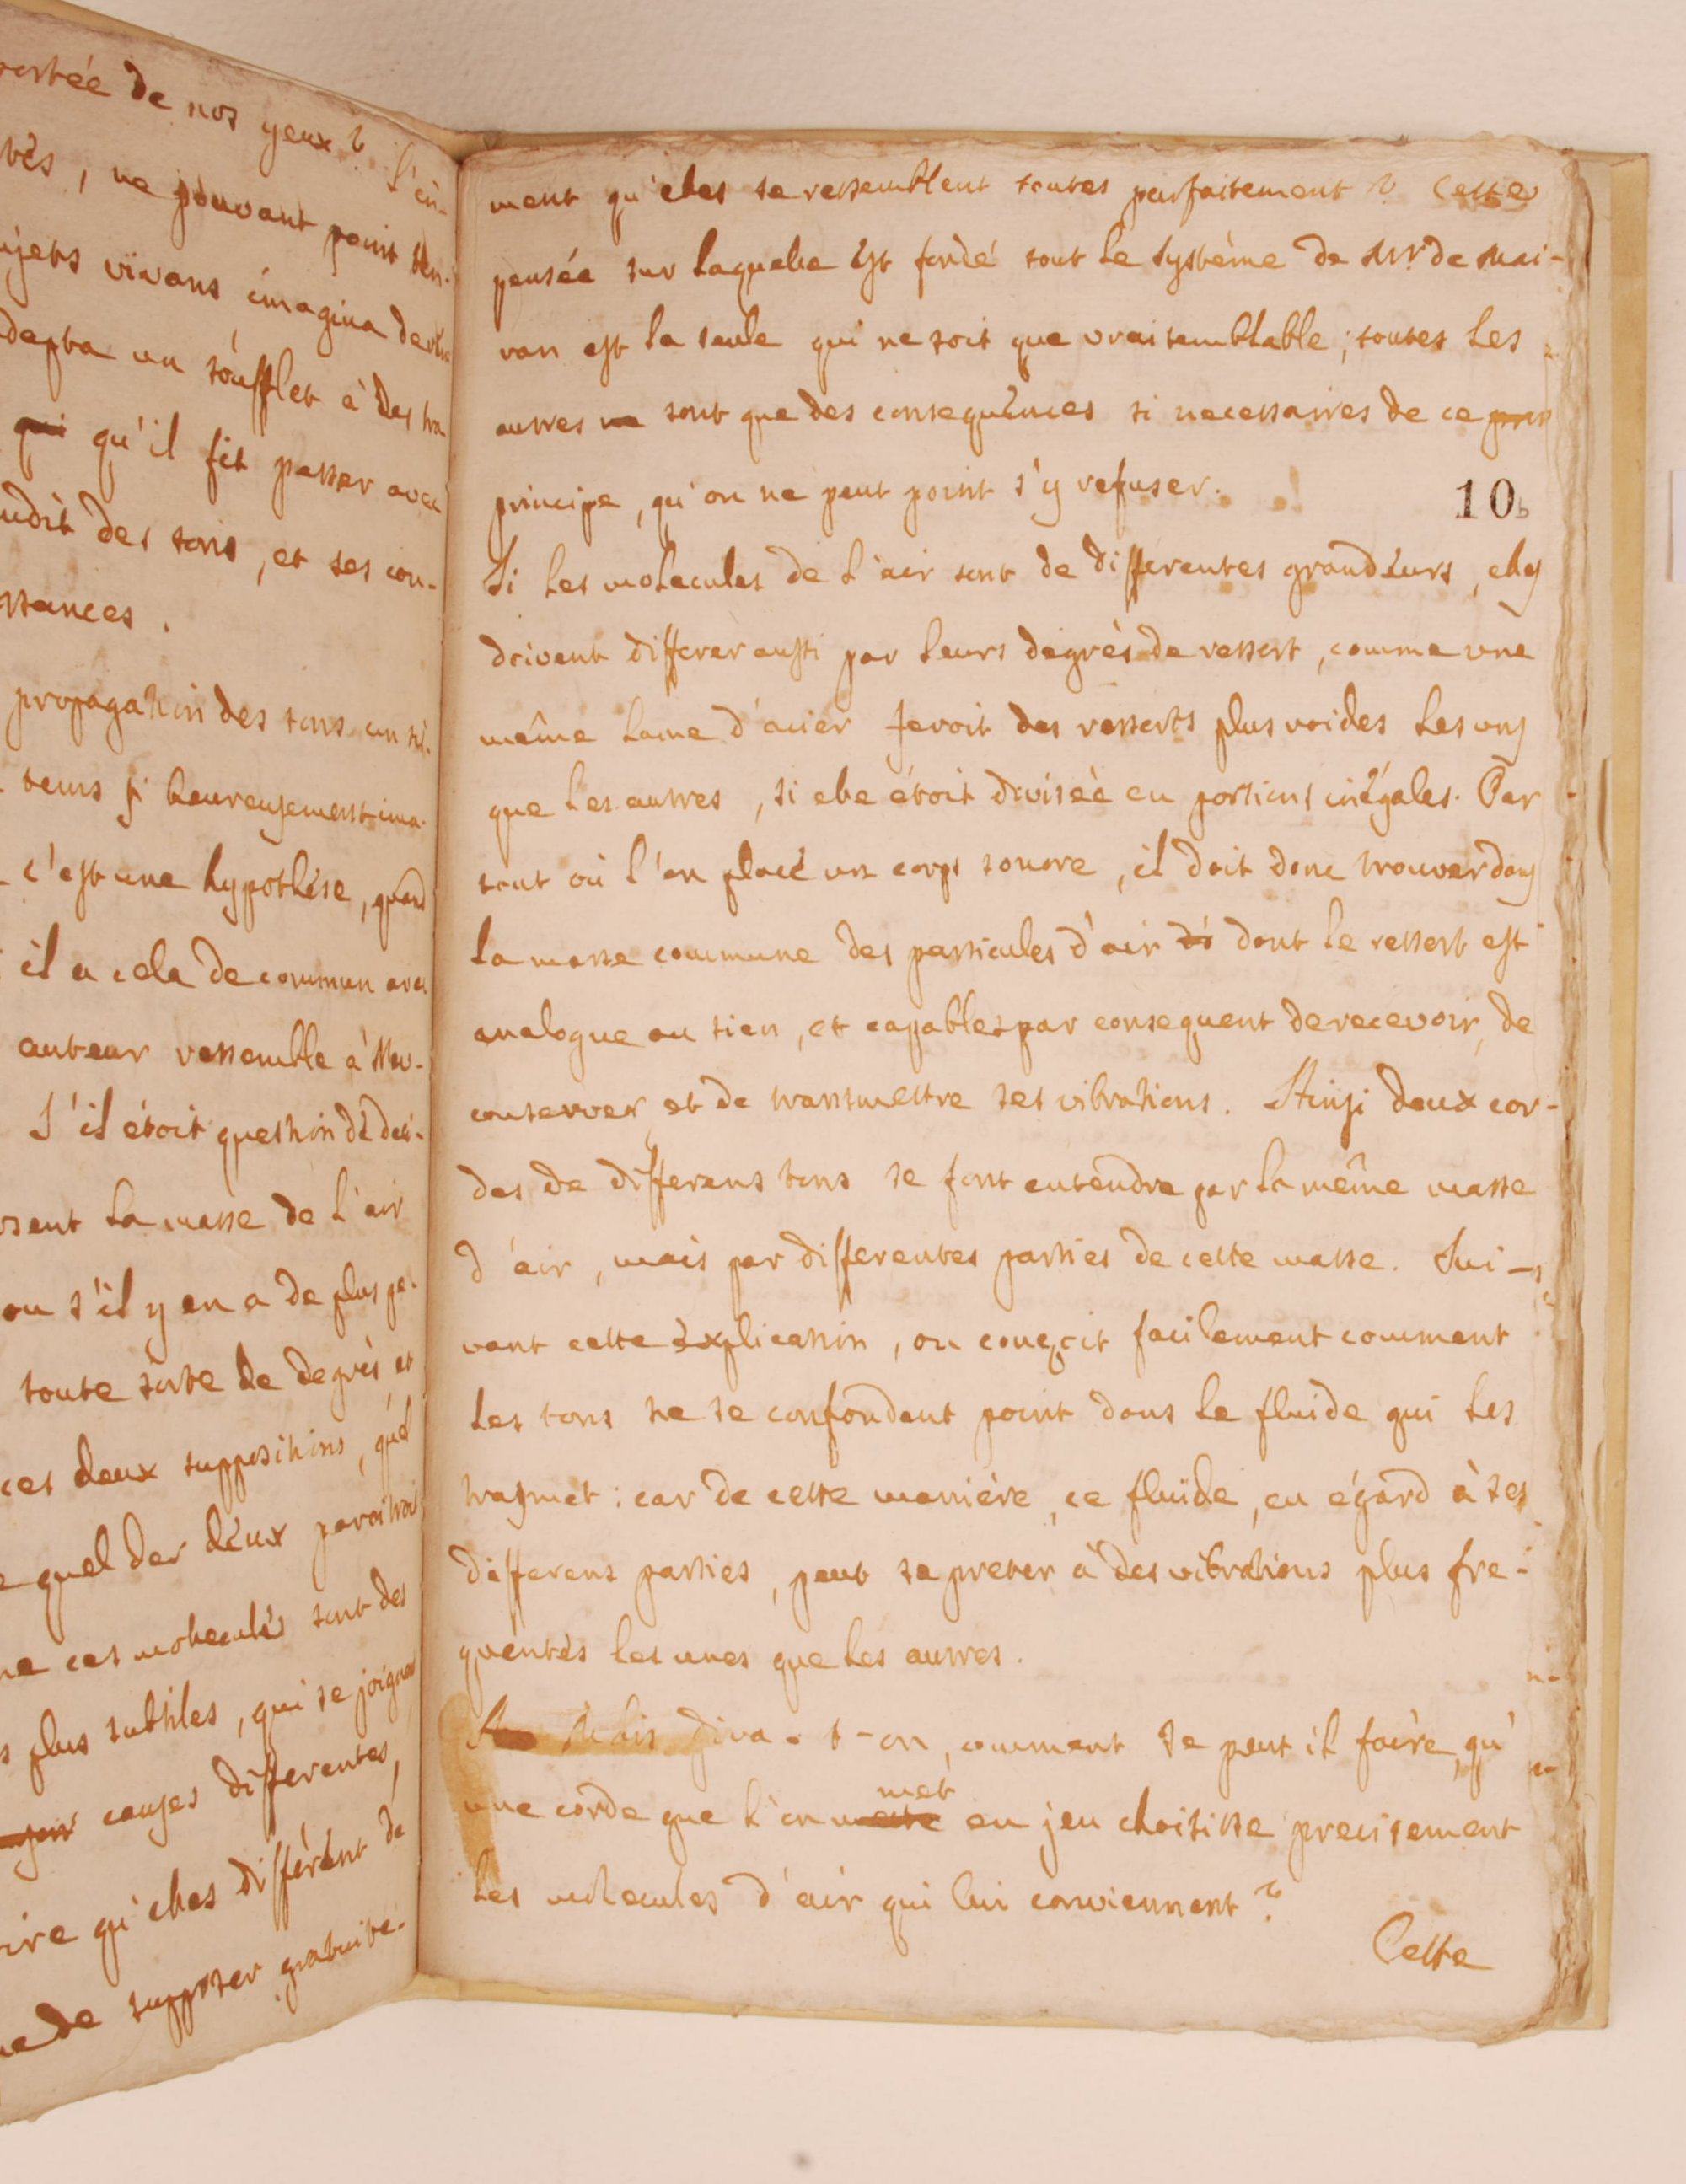 portée de nos yeux? L'en-
tés, ne pouvant point ten-
ujets vivans imagina de
depta un soufflet à des tra
qui qu'il fit passer avec
ndit des sons, et ses con-
ssances.
propagation des sons un si-
tems si heureusement ima-
c'est une hypothése, quand
il a cela de commun avec
auteur ressemble à New-
S'il étoit question de deci-
sent la masse de l'air
ou s'il y en a de plus pe-
toute sorte de degrés et
ces deux suppositions, quel
e quel des deux paroitroi
ne ces molecules sont des
s plus subtiles, qui se joignent
causes differentes,
ire qu'elles différent de
ede supposer gratuite-
ment qu'elles se ressemblent toutes parfaitement? Cette
pensée sur laquelle est fondé tout le système de Mr. de Mai-
ran est la seule qui ne soit que vraisemblable; toutes les
autres ne sont que des consequences si necessaires de ce prin
principe, qu'on ne peut point s'y refuser.
10b
Si les molecules de l'air sont de differentes grandeurs, elles
doivent differer aussi par leurs degrés de ressort, comme une
même lame d'acier feroit des ressorts plus roides les uns
que les autres, si elle étoit divisée en portions inégales. Par
tout où l'on place un corps sonore, il doit donc trouver dans
la masse commune des particules d'air do dont le ressort est
analogue au sien, et capables par consequent de recevoir, de
conserver et de transmettre ses vibrations. Ainsi deux cor-
des de differens tons se font entendre par la même masse
d'air, mais par differentes parties de cette masse. Sui-
vant cette explication, on conçoit facilement comment
les tons ne se confondent point dans le fluide qui les
trasmet: car de cette manière, ce fluide, eu égard à ses
differens parties, peut se preter à des vibrations plus fre-
quentes les unes que les autres.
Mais dira-t-on, comment se peut il faire, qu'
met
une corde que l'on mette en jeu choisisse precisement
les molecules d'air qui lui conviennent?
Cette